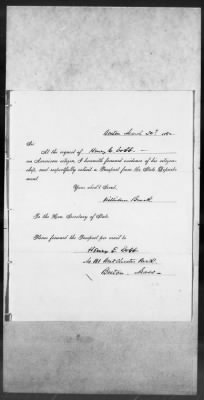 Boston March 30th 18
Sir
At the request of Henry E. Cobb —
an American citizen, I herewith forward evidence of his citizen-
ship, and respectfully solicit a Passport from the State Depart-
ment.
Your obd't Servt,
William
To the Hon. Secretary of State.
Please forward the Passport per mail to
Henry E Cobb
Boston, Mass —